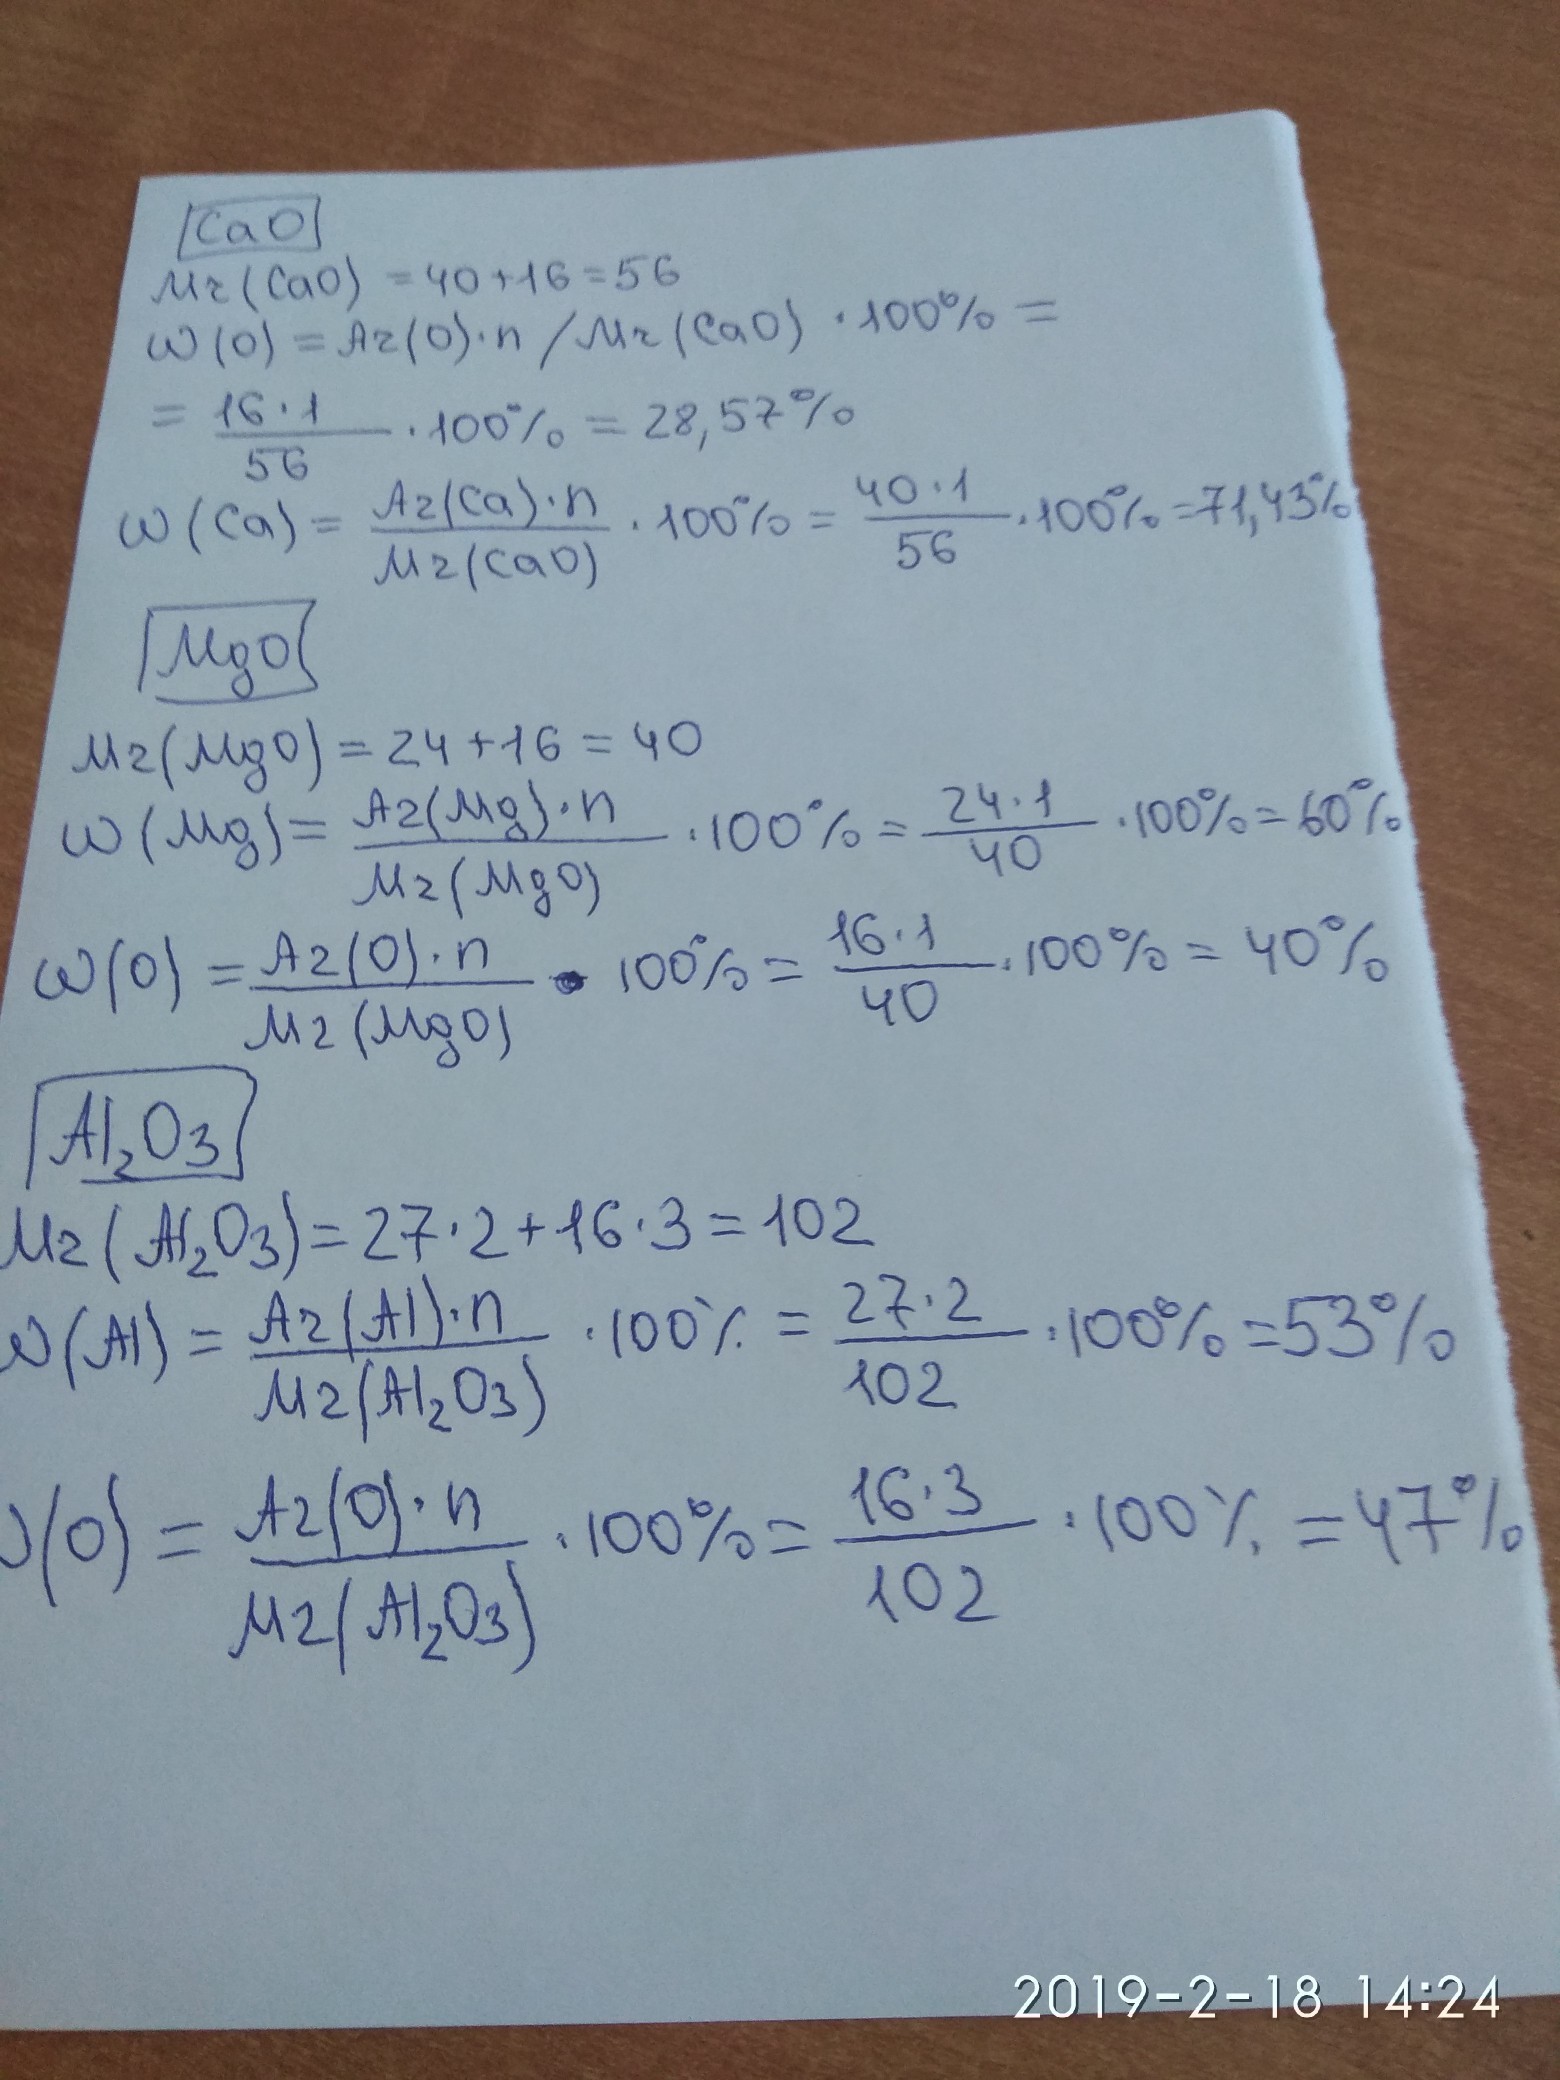 CaO
Mr(CaO) = 40+16=56
w(O) = Ar(O)·n / Mr(CaO) ·100% =
= 16·1/56 ·100% = 28,57%
w(Ca) = Ar(Ca)·n/Mr(CaO) ·100% = 40·1/56 ·100% =71,43%
MgO
Mr(MgO) = 24+16 = 40
w(Mg) = Ar(Mg)·n/Mr(MgO) ·100% = 24·1/40 ·100% = 60%
w(O) = Ar(O)·n/Mr(MgO) · 100% = 16·1/40 ·100% = 40%
Al₂O₃
Mr(Al₂O₃) = 27·2+16·3 = 102
w(Al) = Ar(Al)·n/Mr(Al₂O₃) ·100% = 27·2/102 ·100% =53%
w(O) = Ar(O)·n/Mr(Al₂O₃) ·100% = 16·3/102 ·100% = 47%
2019-2-18 14:24